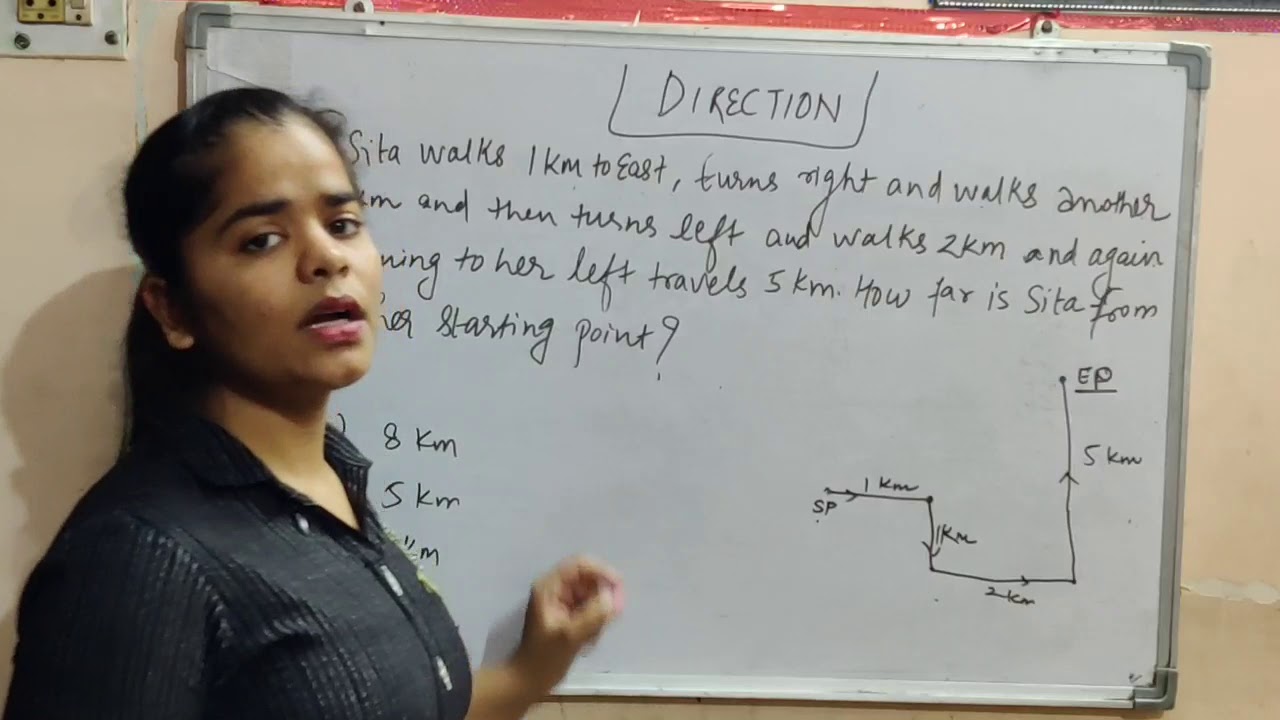 DIRECTION
Sita walks 1km to East, turns right and walks another
km and then turns left and walks 2km and again
ning to her left travels 5 km. How far is Sita from
her starting point?
8 km
5 km
km
EP
5 km
1 km
SP
1km
2km